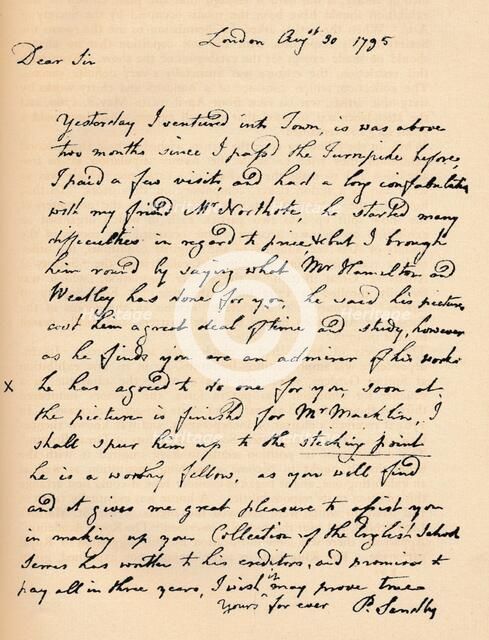 London Augst 30 1795
Dear Sir
Yesterday I ventured into Town, is was above
two months since I pass'd the Turnpike before,
I paid a few visits, and had a long confabulation
with my friend Mr Northcote, he started many
difficulties in regard to price &c but I brough
him round by saying what Mr Hamilton and
Weatley has done for you, he said his pictures
cost him a great deal of time and study, however
as he finds you are an admirer of his works
x he has agreed to do one for you, soon at
the picture is finished for Mr Macklin, I
shall spur him up to the sticking point
he is a worthy fellow, as you will find
and it gives me great pleasure to assist you
in making up your Collection of the English School
Serres has written to his creditors, and promises to
pay all in three years, I wish it may prove true
Yours for ever P. Sandby
Heritage
Heritage